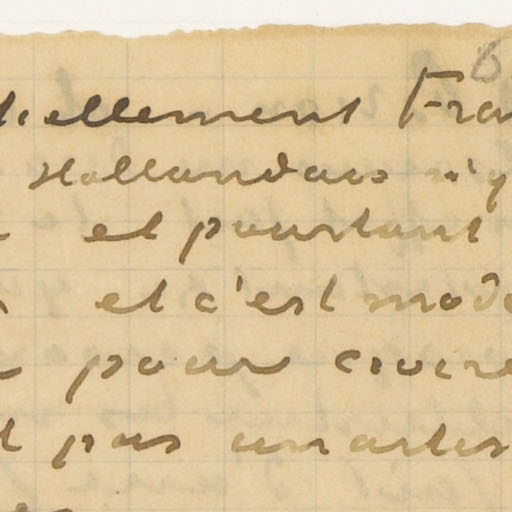 6
tiellement Fran
Hollandais n'y
et pourtant
et c'est mode
pour croire
t pas un artis